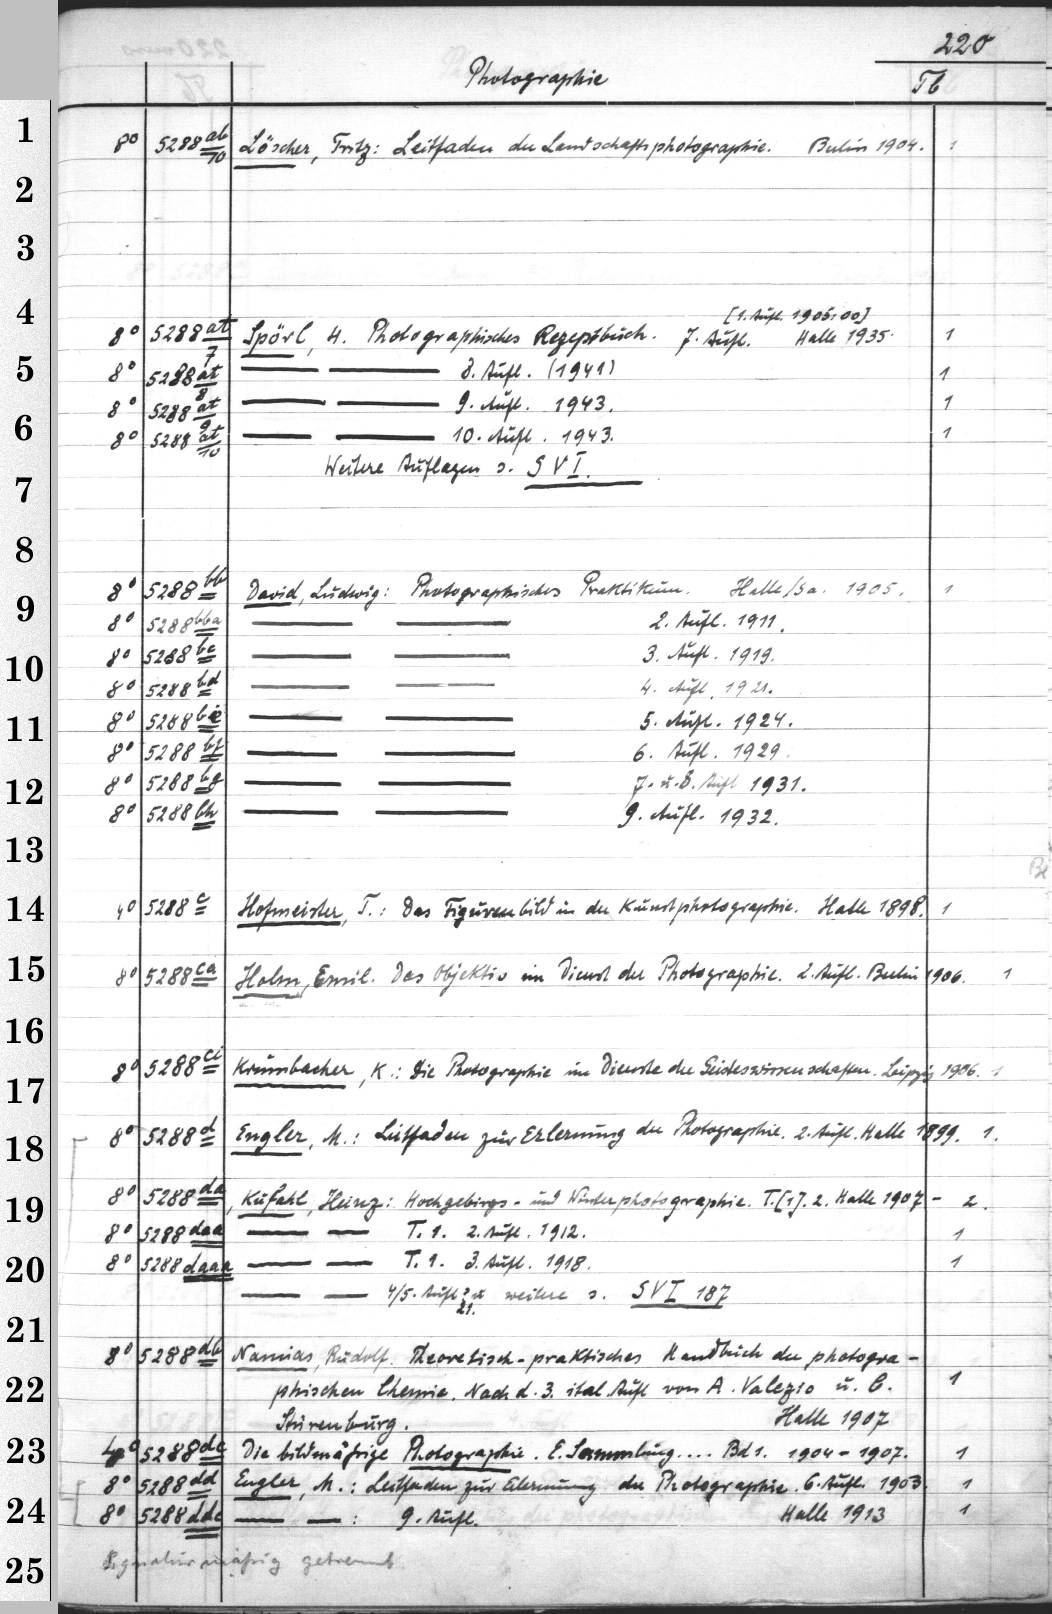 220
Photographie
Tb
1
8° 5288 ab/10 Löscher, Fritz: Leitfaden der Landschaftsphotographie. Berlin 1904. 1
2
3
4
[1. Aufl. 1905.00]
8° 5288 at/7 Spörl, H. Photographisches Rezeptbuch. 7. Aufl. Halle 1935. 1
5
8° 5288 at/8 — — 8. Aufl. (1941) 1
8° 5288 at/9 — — 9. Aufl. 1943. 1
6
8° 5288 at/10 — — 10. Aufl. 1943. 1
Weitere Auflagen s. SVI.
7
8
8° 5288 bb David, Ludwig: Photographisches Praktikum. Halle/Sa. 1905. 1
9
8° 5288 bba — — 2. Aufl. 1911.
10
8° 5288 bc — — 3. Aufl. 1919.
8° 5288 bd — — 4. Aufl. 1921.
11
8° 5288 be — — 5. Aufl. 1924.
8° 5288 bf — — 6. Aufl. 1929.
12
8° 5288 bg — — 7. u. 8. Aufl 1931.
8° 5288 bh — — 9. Aufl. 1932.
13
14
4° 5288 c Hofmeister, T.: Das Figurenbild in der Kunstphotographie. Halle 1898. 1
15
8° 5288 ca Holm, Ernil. Das Objektiv im Dienst der Photographie. 2. Aufl. Berlin 1906. 1
16
8° 5288 ci Krumbacher, K.: Die Photographie im Dienste der Geisteswissenschaften. Leipzig 1906. 1
17
18
8° 5288 d Engler, M.: Leitfaden zur Erlernung der Photographie. 2. Aufl. Halle 1899. 1.
19
8° 5288 da, Kufahl, Heinz: Hochgebirgs- und Winterphotographie. T.[1]. 2. Halle 1907 - 2.
8° 5288 daa — — T. 1. 2. Aufl. 1912. 1
20
8° 5288 daaa — — T. 1. 3. Aufl. 1918. 1
— — 4/5. Aufl. 21. u weitere s. SVI 187
21
8° 5288 db Namias, Rudolf. Theoretisch-praktisches Handbuch der photogra-
22
phischen Chemie. Nach d. 3. ital. Aufl von A. Valezio u. C. 1
Stürenburg. Halle 1907
23
4° 5288 dc Die bildmäßige Photographie. E. Sammlung.... Bd 1. 1904-1907. 1
8° 5288 dd Engler, M.: Leitfaden zur Erlernung der Photographie. 6. Aufl. 1903. 1
24
8° 5288 dde — — : 9. Aufl. Halle 1913 1
Signaturmäßig getrennt
25